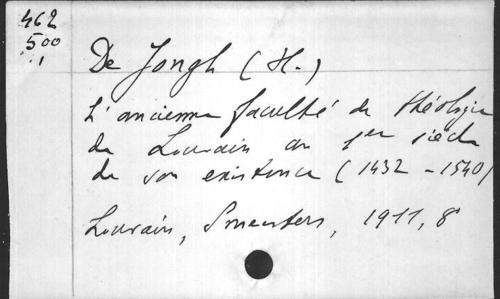 462
500
1
De Jongh (H.)
L'ancienne faculté de théologie
de Louvain au 1er siècle
de son existence (1432-1540)
Louvain, Smeesters, 1911, 8°